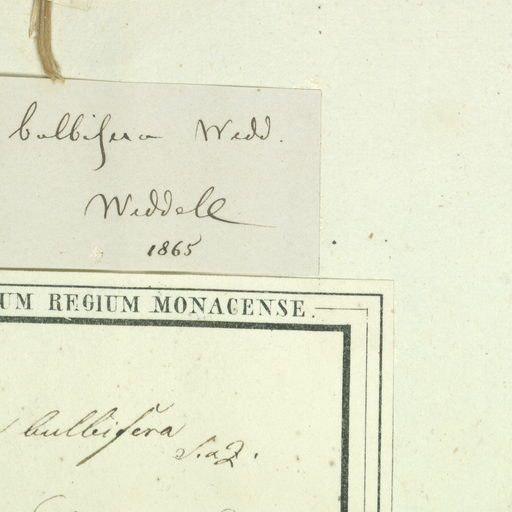 bulbifera Wedd.
Weddell
1865
UM REGIUM MONACENSE.
bulbifera
S. a Z.